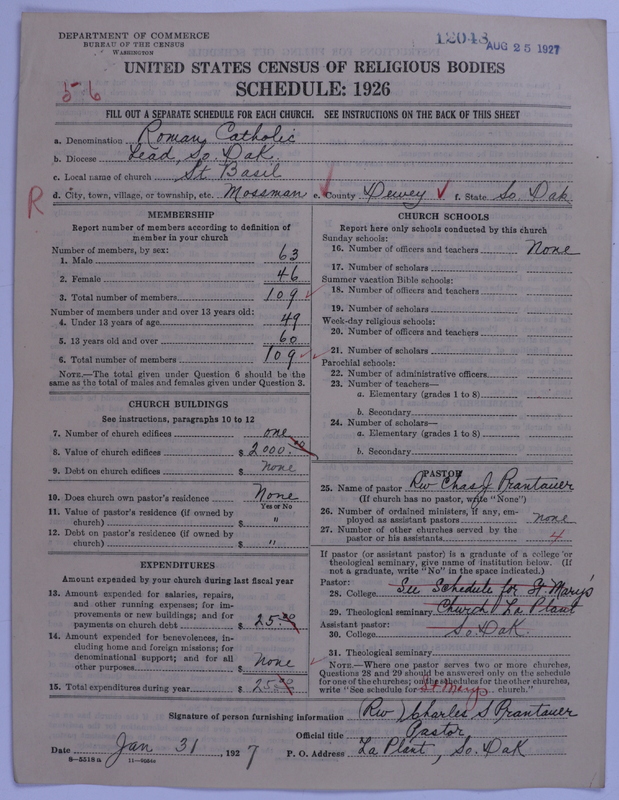 DEPARTMENT OF COMMERCE
BUREAU OF THE CENSUS
WASHINGTON
12043 AUG 25 1927
UNITED STATES CENSUS OF RELIGIOUS BODIES
SCHEDULE: 1926
5-6
FILL OUT A SEPARATE SCHEDULE FOR EACH CHURCH. SEE INSTRUCTIONS ON THE BACK OF THIS SHEET
a. Denomination Roman Catholic
b. Diocese Lead, So. Dak.
c. Local name of church St Basil
R
d. City, town, village, or township, etc. Mossman e. County Dewey f. State So. Dak.
MEMBERSHIP
Report number of members according to definition of
member in your church
Number of members, by sex:
1. Male 63
2. Female 46
3. Total number of members 109
Number of members under and over 13 years old:
4. Under 13 years of age 49
5. 13 years old and over 60
6. Total number of members 109
NOTE.—The total given under Question 6 should be the
same as the total of males and females given under Question 3.
CHURCH BUILDINGS
See instructions, paragraphs 10 to 12
7. Number of church edifices one
8. Value of church edifices $ 2000.00
9. Debt on church edifices $ None
10. Does church own pastor's residence None
Yes or No
11. Value of pastor's residence (if owned by
church) $ "
12. Debt on pastor's residence (if owned by
church) $ "
EXPENDITURES
Amount expended by your church during last fiscal year
13. Amount expended for salaries, repairs,
and other running expenses; for im-
provements or new buildings; and for
payments on church debt $ 25.00
14. Amount expended for benevolences, in-
cluding home and foreign missions; for
denominational support; and for all
other purposes $ None
15. Total expenditures during year $ 25.00
CHURCH SCHOOLS
Report here only schools conducted by this church
Sunday schools:
16. Number of officers and teachers None
17. Number of scholars
Summer vacation Bible schools:
18. Number of officers and teachers
19. Number of scholars
Week-day religious schools:
20. Number of officers and teachers
21. Number of scholars
Parochial schools:
22. Number of administrative officers
23. Number of teachers—
a. Elementary (grades 1 to 8)
b. Secondary
24. Number of scholars—
a. Elementary (grades 1 to 8)
b. Secondary
PASTOR
25. Name of pastor Rev Chas J Prantauer
(If church has no pastor, write "None")
26. Number of ordained ministers, if any, em-
ployed as assistant pastors none
27. Number of other churches served by the
pastor or his assistants 4
If pastor (or assistant pastor) is a graduate of a college or
theological seminary, give name of institution below. (If
not a graduate, write "No" in the space indicated.)
Pastor:
28. College See Schedule for St Mary's
29. Theological seminary Church La Plant
Assistant pastor:
30. College So. Dak.
31. Theological seminary
NOTE.—Where one pastor serves two or more churches,
Questions 28 and 29 should be answered only on the schedule
for one of the churches; on the schedules for the other churches,
write "See schedule for St Marys church."
Signature of person furnishing information (Rev) Charles S Prantauer
Official title Pastor
Date Jan 31, 1927 P. O. Address La Plant, So. Dak
8—5518a 11—9864